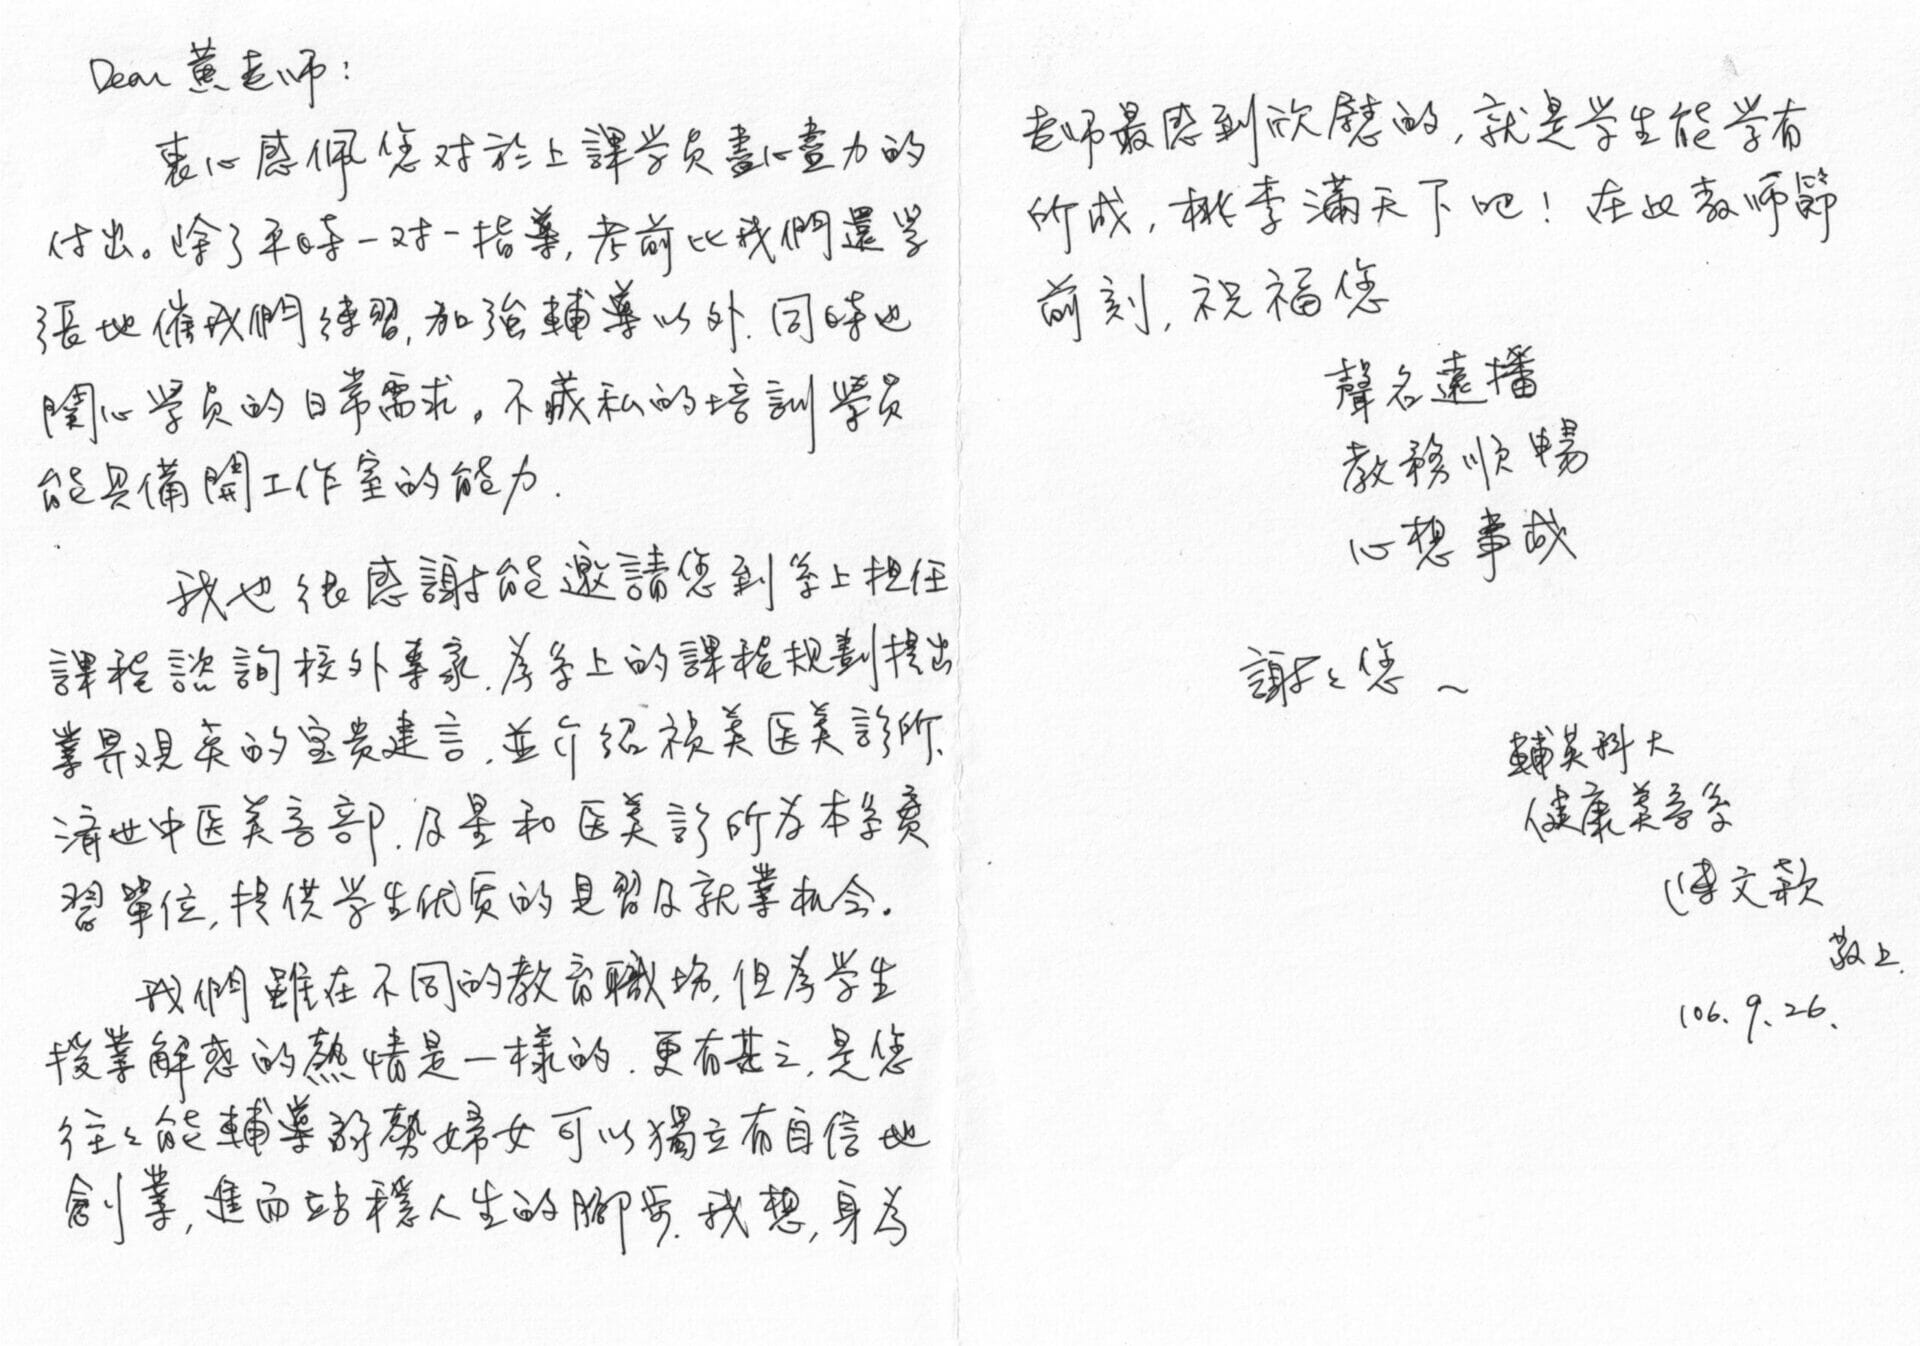 Dear 黃老师：
衷心感佩您对於上課学员盡心盡力的
付出。除了平時一对一指導, 考前比我們還緊
張地催我們練習, 加強輔導以外. 同時也
関心学员的日常需求。不藏私的培訓學员
能具備開工作室的能力.
我也很感謝能邀請您到系上担任
課程諮詢校外專家. 為系上的課程規劃提出
業界观点的宝贵建言. 並介紹禎美医美診所、
濟世中医美容部. 及星和医美診所为本系實
習單位, 提供学生优质的見習及就業机会。
我們雖在不同的教育職场, 但為学生
授業解惑的熱情是一樣的. 更有甚之, 是您
往々能輔導弱勢婦女可以獨立有自信地
創業, 進而站穩人生的腳步. 我想, 身為
老师最感到欣慰的, 就是学生能学有
所成, 桃李滿天下吧! 在此教师節
前刻, 祝福您
聲名遠播
教務順暢
心想事成
謝々您～
輔英科大
健康美容系
陳文
敬上.
106. 9. 26.